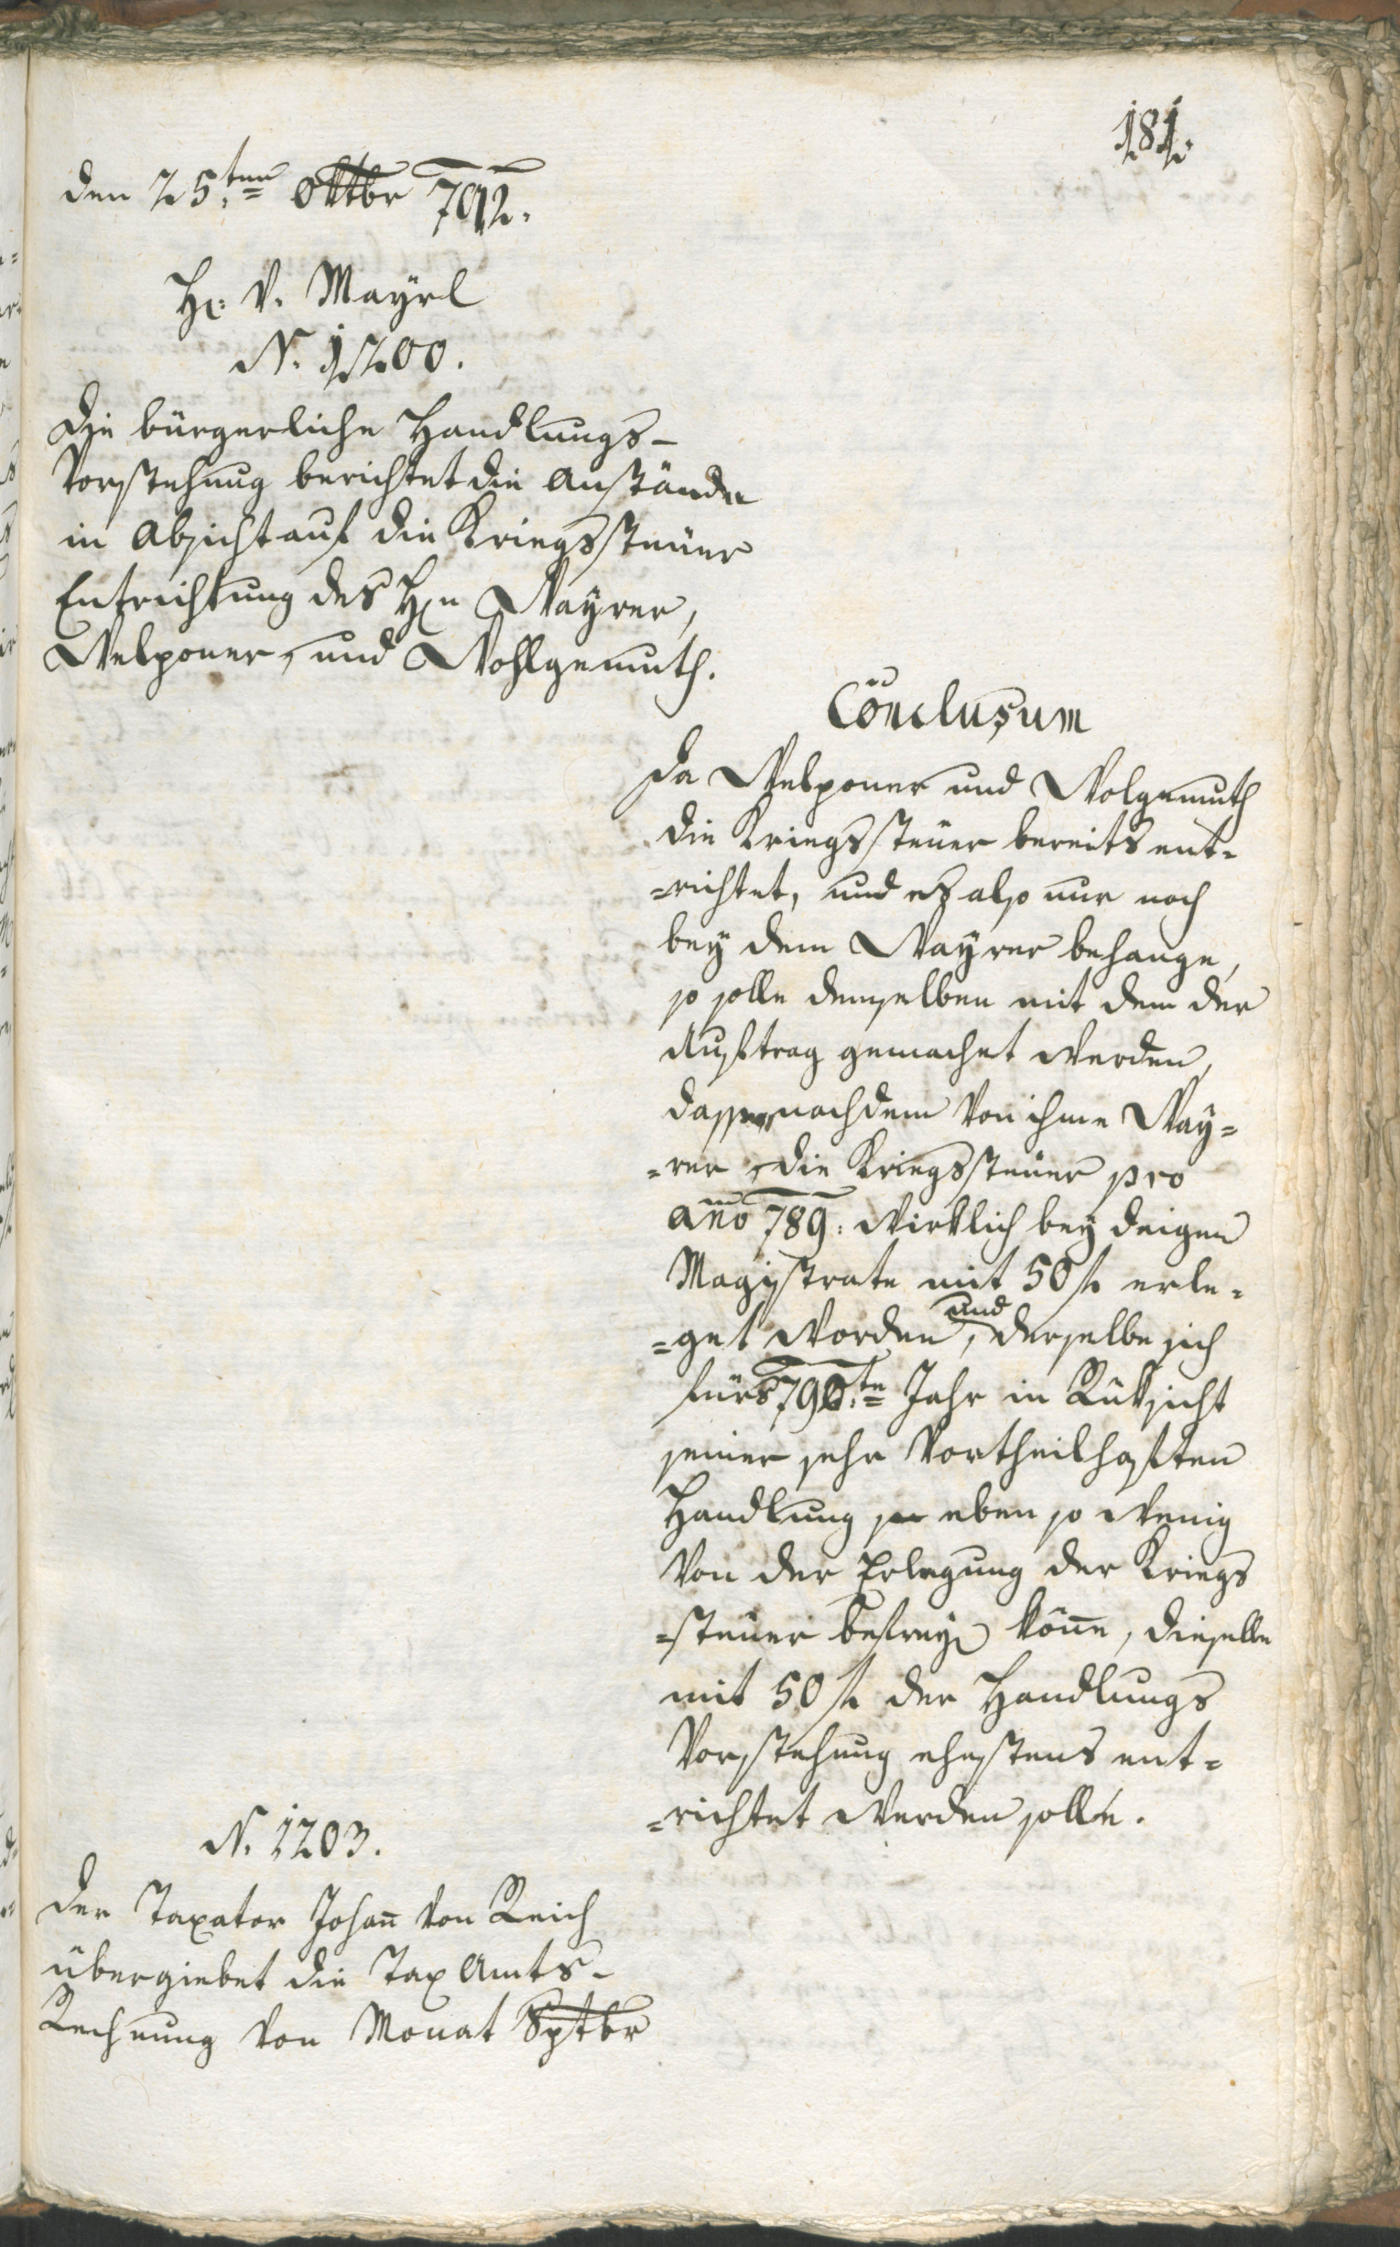 181.
den 25.ten Oktbr 792.
Hr: v. Mayrl
N. 1200.
Die bürgerliche Handlungs-
Vorstehung berichtet die Anstände
in Absicht auf die Kriegssteüer
Entrichtung des Hrn Mayrer,
Welponer, und Wohlgemuth.
Conclusum
Da Welponer und Wolgemuth
die Kriegssteüer bereits ent-
-richtet, und es also nur noch
bey dem Mayrer behange,
so solle demselben mit dem der
Auftrag gemachet werden,
dass nachdem von ihme May-
-rer die Kriegssteüer pro
año 789: wirklich bey dsigem
Magistrate mit 50 f erle-
-get worden, und derselbe sich
fürs 790.te Jahr in Rüksicht
seiner sehr vortheilhaften
Handlung eben so wenig
von der Erlegung der Kriegs
-steüer befreyen könne, dieselbe
mit 50 f der Handlungs
Vorstehung ehestens ent-
-richtet werden solle.
N. 1203.
Der Taxator Johañ von Reich
übergiebet die Tax Amts-
Rechnung von Monat Sptbr